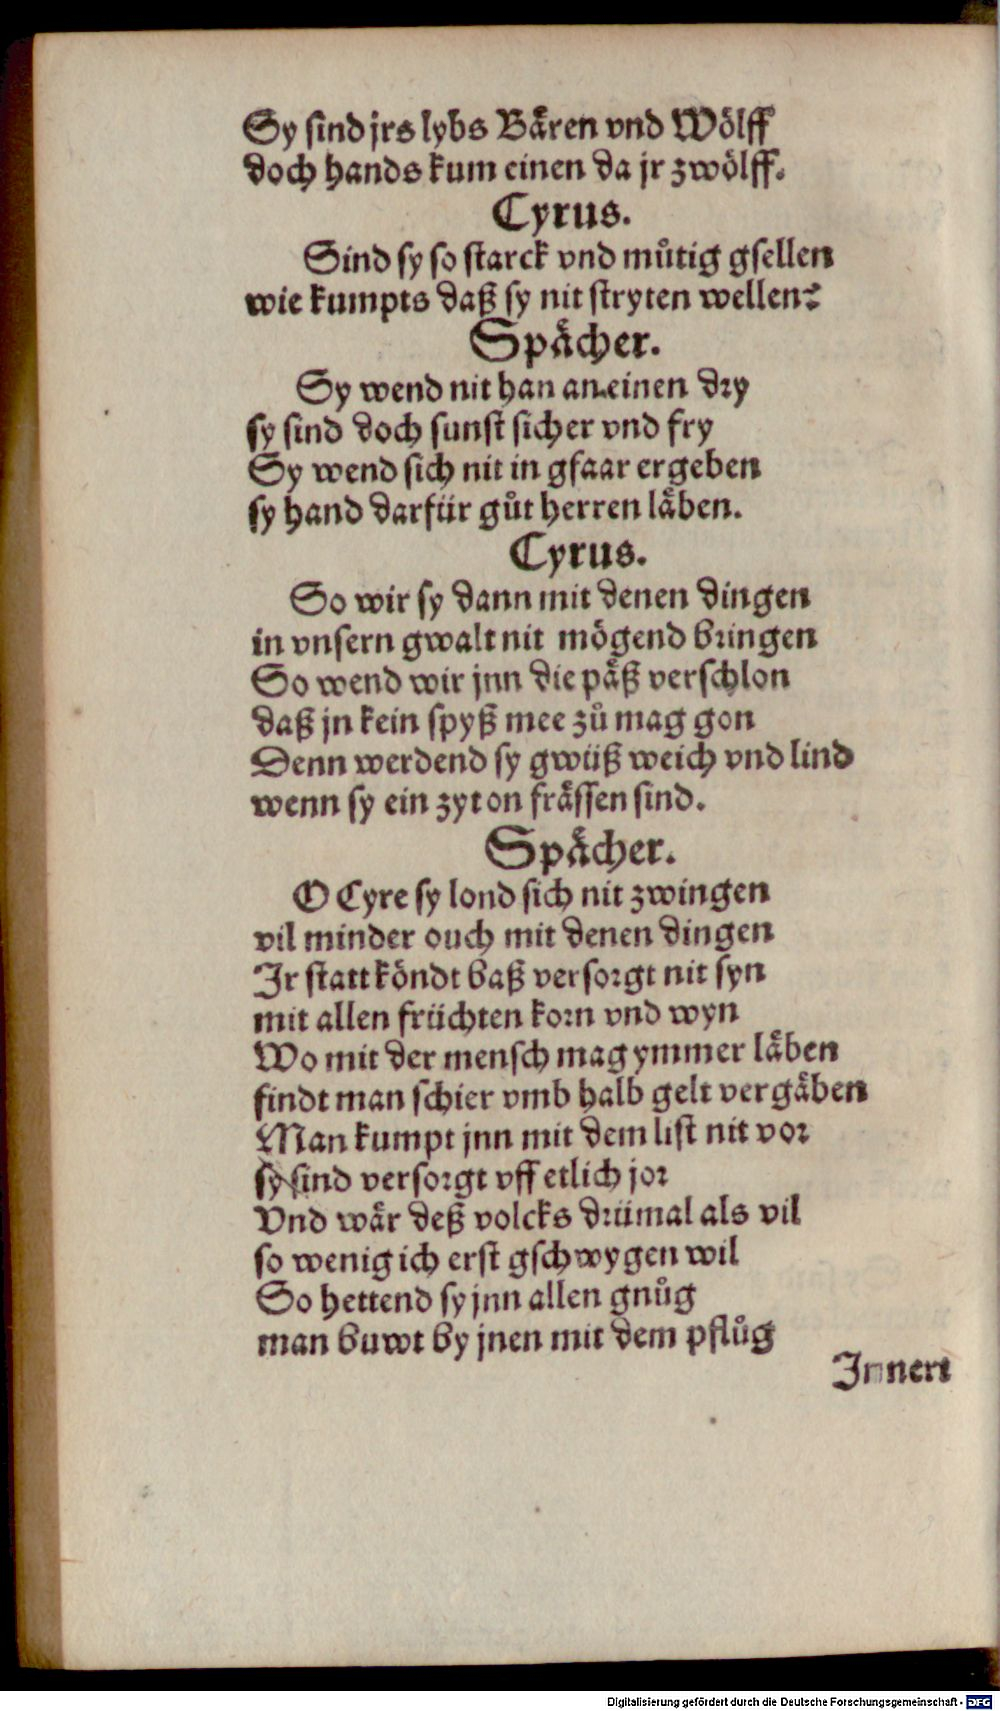 Sy sind jrs lybs Baͤren vnd Woͤlff
doch hands kum einen da jr zwoͤlff.
Cyrus.
Sind sy so starck vnd muͦtig gsellen
wie kumpts daß sy nit stryten wellen?
Spaͤcher.
Sy wend nit han an einen dry
sy sind doch sunst sicher vnd fry
Sy wend sich nit in gfaar ergeben
sy hand darfür guͦt herren laͤben.
Cyrus.
So wir sy dann mit denen dingen
in vnsern gwalt nit moͤgend bringen
So wend wir jnn die paͤß verschlon
daß jn kein spyß mee zuͦ mag gon
Denn werdend sy gwüß weich vnd lind
wenn sy ein zyt on fraͤssen sind.
Spaͤcher.
O Cyre sy lond sich nit zwingen
vil minder ouch mit denen dingen
Jr statt koͤndt baß versorgt nit syn
mit allen früchten korn vnd wyn
Wo mit der mensch mag ymmer laͤben
findt man schier vmb halb gelt vergaͤben
Man kumpt jnn mit dem list nit vor
sy sind versorgt vff etlich jor
Vnd waͤr deß volcks drümal als vil
so wenig ich erst gschwygen wil
So hettend sy jnn allen gnuͦg
man buwt by jnen mit dem pfluͦg
Jnnert
Digitalisierung gefördert durch die Deutsche Forschungsgemeinschaft - DFG